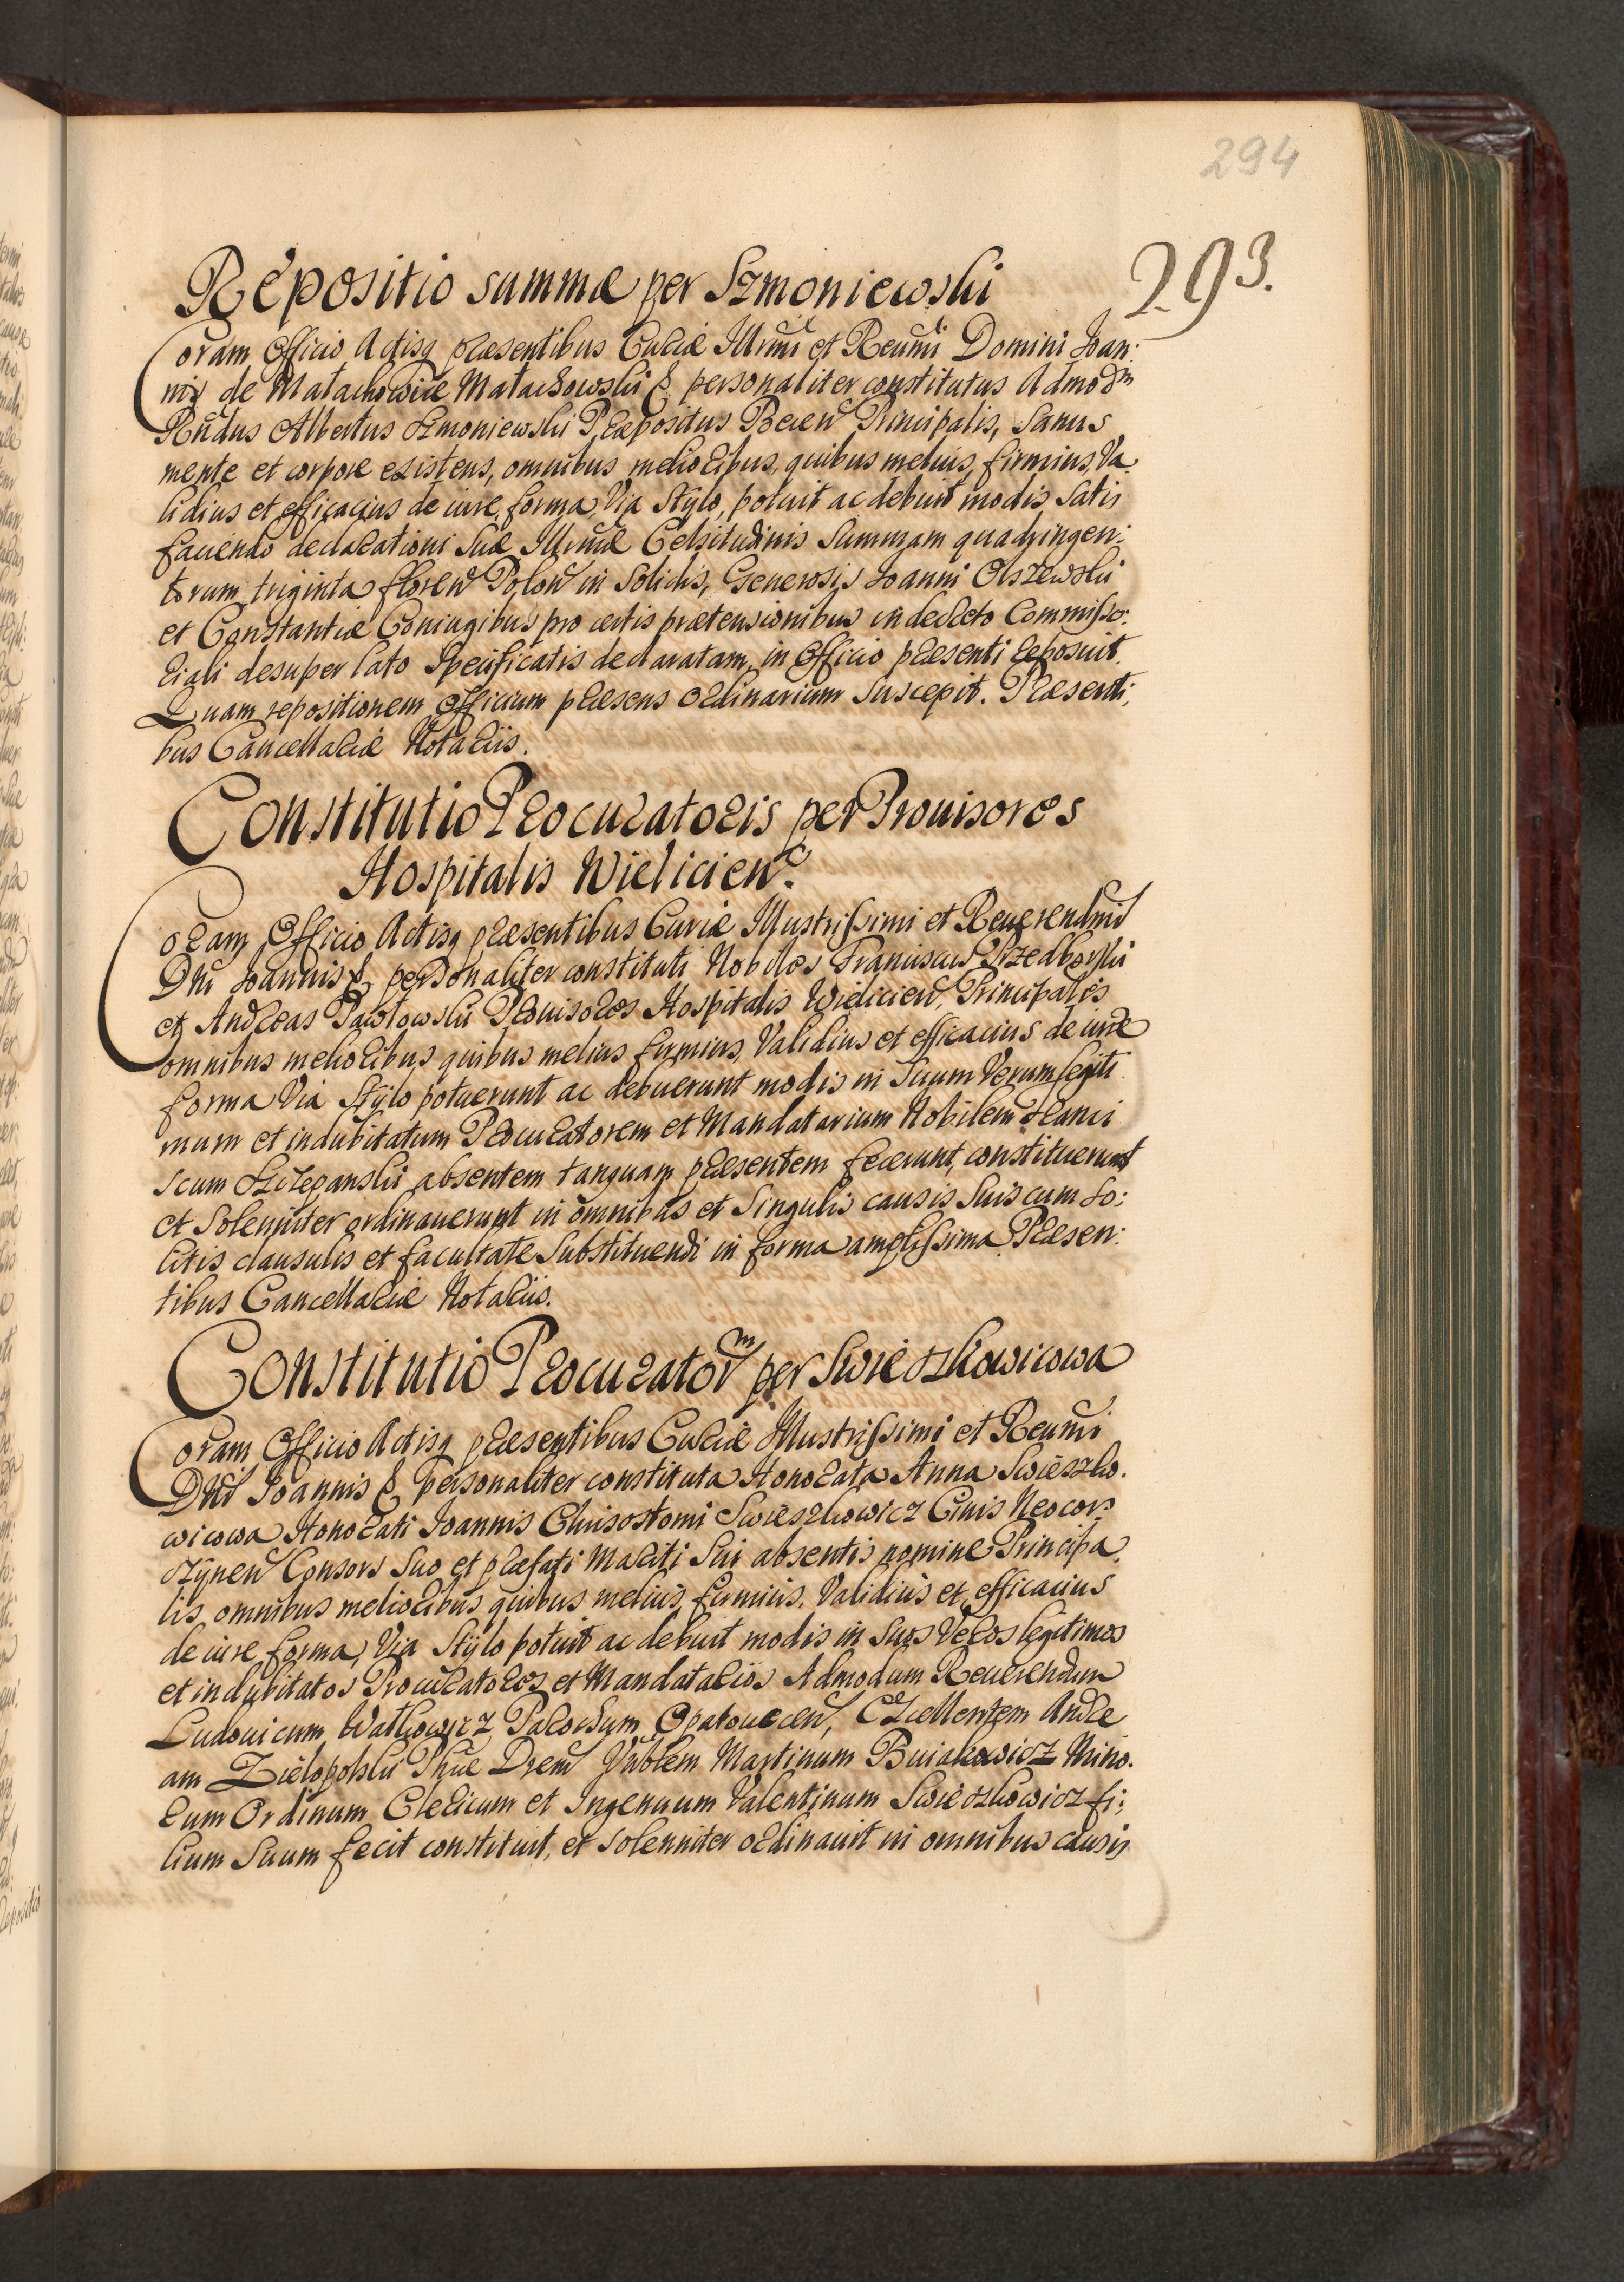 294
293.
Repositio summæ per Szmoniewski
Coram Officio Actisq præsentibus Curiæ Illrmi et Reumi Domini Joan:
nis de Małachowice Małachowski & personaliter constitutus Admodm
Rndus Albertus Szmoniewski Præpositus Becen Principalis, Sanus
mente et corpore existens, omnibus melioribus, quibus melius, firmius, Va
lidius et efficacius de iure, forma, Via Stylo, potuit ac debuit modis, Satis
faciendo declarationi Suæ Illrmæ Celsitudinis Summam quadringen:
torum triginta floren Polon in Solidis, Generosis Joanni Olszewski
et Constantiæ Coniugibus pro certis prætensionibus in decreto Commisso:
riali desuper lato Specificatis declaratam, in Officio præsenti reposuit.
Quam repositionem Officium præsens Ordinarium Suscepit. Præsenti:
bus Cancellariæ Notariis.
Constitutio Procuratoris per Prouisores
Hospitalis Wielicien.
Coram Officio Actisq præsentibus Curiæ Illustrissimi et Reuerendmi
Dni Joannis & personaliter constituti Nobiles Franciscus Przedborski
et Andreas Pawłowski Prouisores Hospitalis Wielicien, Principales
omnibus melioribus quibus melius firmius, Validius et efficacius de iure
forma Via Stylo potuerunt ac debuerunt modis in Suum Verum legiti
mum et indubitatum Procuratorem et Mandatarium Nobilem Franci
scum Szczepanski absentem tanquam præsentem fecerunt, constituerunt
et Solenniter ordinauerunt in omnibus et Singulis causis Suis cum So:
litis clausulis et facultate Substituendi in forma amplissima. Præsen:
tibus Cancellariæ Notariis.
Constitutio Procuratorm per Swieszkowicowa
Coram Officio Actisq præsentibus Curiæ Illustrissimi et Reumi
Dni Joannis & personaliter constituta Honorata Anna Swieszko.
wicowa Honorati Joannis Chrisostomi Swieszkowicz Ciuis Neocor
czynen Consors Suo et præfati Mariti Sui absentis nomine Principa
lis, omnibus melioribus quibus melius, firmius, Validius et efficacius
de iure forma, Via Stylo potuit ac debuit modis in Suos Veros legitimos
et indubitatos Procuratores et Mandatarios Admodum Reuerendum
Ludouicum Watkowicz Parochum Opatouecen, Excellentem Andre
am Zielopolski Phiæ Drem Noblem Martinum Buiakowicz Mino.
rum Ordinum Clericum et Ingenuum Valentinum Swieszkowicz fi:
lium Suum fecit constituit, et Solenniter ordinauit in omnibus causis